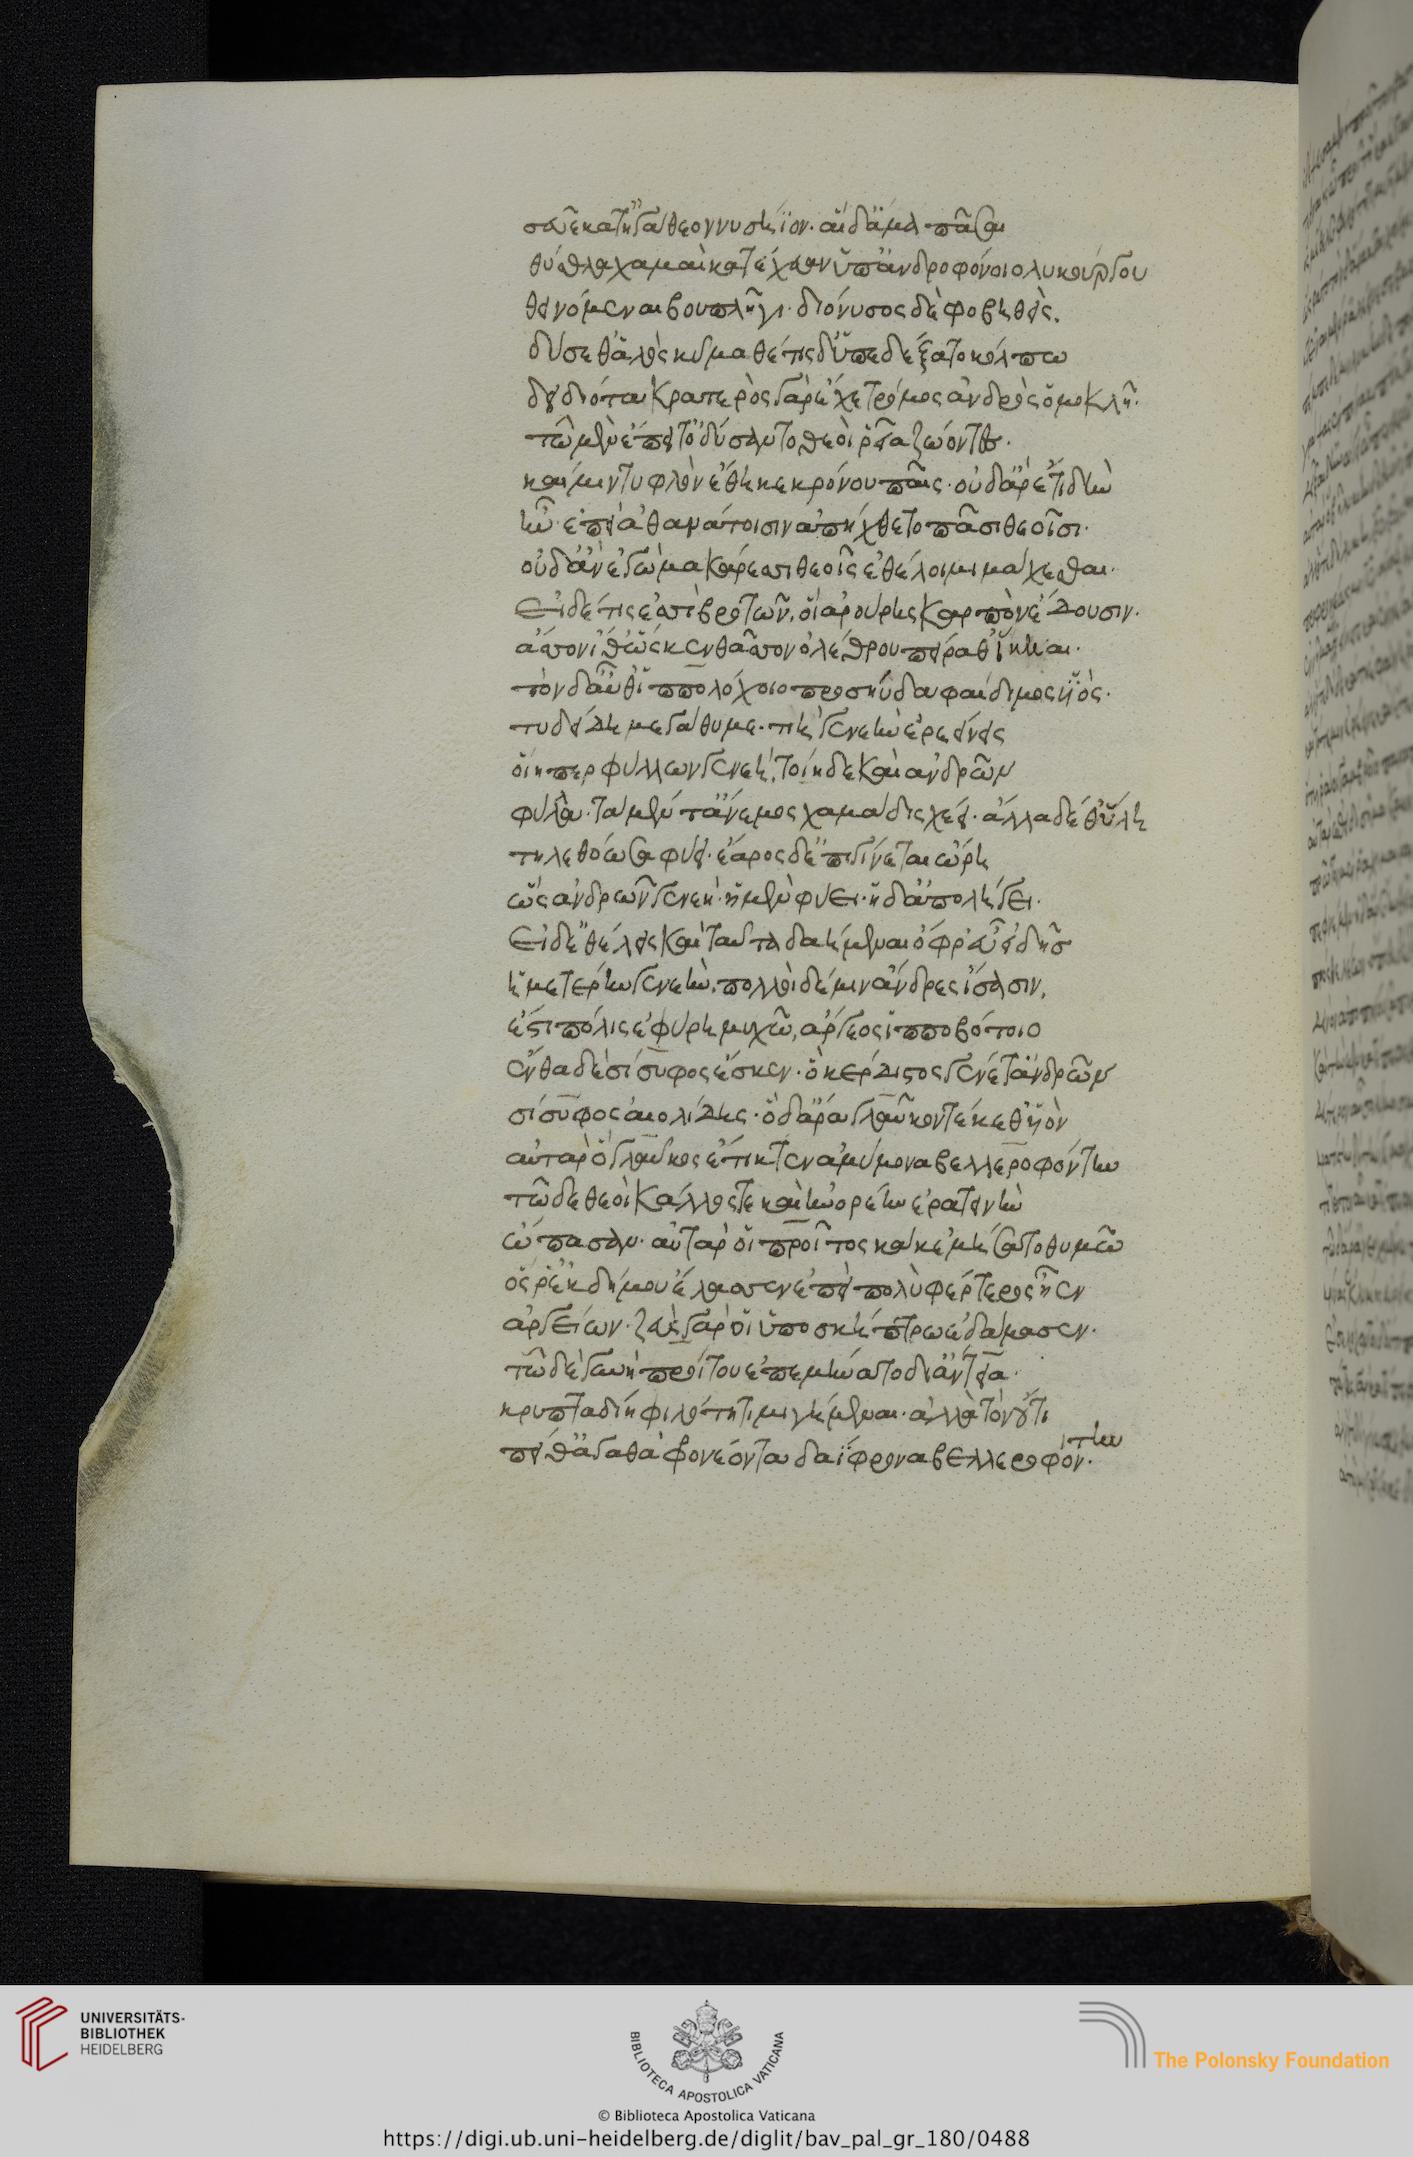 σεῦε κατ' ἠγάθεον νυσήϊον· αἳ δ' ἅμα πᾶσαι
θύσθλα χαμαὶ κατέχευαν ὑπ' ἀνδροφόνοιο λυκούργου
θεινόμεναι βουπλῆγι· διόνυσος δὲ φοβηθεὶς.
δύσεθ' ἁλὸς κῦμα θέτις δ' ὑπεδέξατο κόλπω
δειδιότα· κρατερὸς γὰρ ἔχε τρόμος ἀνδρὸς ὁμοκλῆ·
τῶ μὲν ἔπειτ' ὀδύσαντο θεοὶ ῥεῖα ζώοντες.
καί μιν τυφλὸν ἔθηκε κρόνου παῖς· οὐδ' ἄρ' ἔτι δὴν
ἦν· ἐπεὶ ἀθανάτοισιν ἀπήχθετο πᾶσι θεοῖσι·
οὐδ' ἂν ἐγὼ μακάρεσσι θεοῖς ἐθέλοιμι μάχεσθαι.
Εἰ δέ τίς ἐσσι βροτῶν, οἳ ἀρούρης καρπὸν ἔδουσιν.
ἆσσον ἴθ' ὥς κεν θᾶσσον ὀλέθρου πείραθ' ἵκηαι.
τὸν δ' αὖθ' ἱππολόχοιο προσηύδα φαίδιμος υἱὸς·
τυδείδη μεγάθυμε. τίη γενεὴν ἐρεείνεις
οἵη περ φύλλων γενεή, τοίη δὲ καὶ ἀνδρῶν
φύλλα· τὰ μέν τ' ἄνεμος χαμάδις χέει. ἄλλα δέ θ' ὕλη
τηλεθόωσα φύει· ἔαρος δ' ἐπιγίνεται ὥρη
ὣς ἀνδρῶν γενεή· ἡ μὲν φύει· ἡ δ' ἀπολήγει.
Εἰ δ' ἐθέλεις καὶ ταῦτα δαήμεναι ὄφρ' εὖ εἰδῆς
ἡμετέρην γενεὴν, πολλοὶ δέ μιν ἄνδρες ἴσασιν,
ἔστι πόλις ἐφύρη μυχῶ, ἄργεος ἱπποβότοιο
ἔνθα δὲ σίσυφος ἔσκεν· ὃ κέρδιστος γένετ' ἀνδρῶν
σίσυφος αἰολίδης· ὃ δ' ἄρα γλαῦκον τέκεθ' υἱὸν
αὐτὰρ ὃ γλαῦκος ἔτικτεν ἀμύμονα βελλεροφόντην
τῶ δὲ θεοὶ κάλλος τε καὶ ἠνορέην ἐρατεινὴν
ὤπασαν· αὐτὰρ οἱ προῖτος κακὰ μήσατο θυμῶ
ὅς ῥ' ἐκ δήμου ἔλασσεν ἐπεὶ πολὺ φέρτερος ἦεν
ἀργείων· ζεὺς γάρ οἱ ὑπὸ σκήπτρω ἐδάμασεν.
τῶ δὲ γυνὴ προίτου ἐπεμήνατο δῖ' ἄντεια.
κρυπταδίη φιλότητι μιγήμεναι· ἀλλὰ τὸν οὔτι
πεῖθ' ἀγαθὰ φρονέοντα δαΐφρονα βελλεροφόντην.
UNIVERSITÄTS-
BIBLIOTHEK
HEIDELBERG
BIBLIOTECA APOSTOLICA VATICANA
The Polonsky Foundation
© Biblioteca Apostolica Vaticana
https://digi.ub.uni-heidelberg.de/diglit/bav_pal_gr_180/0488